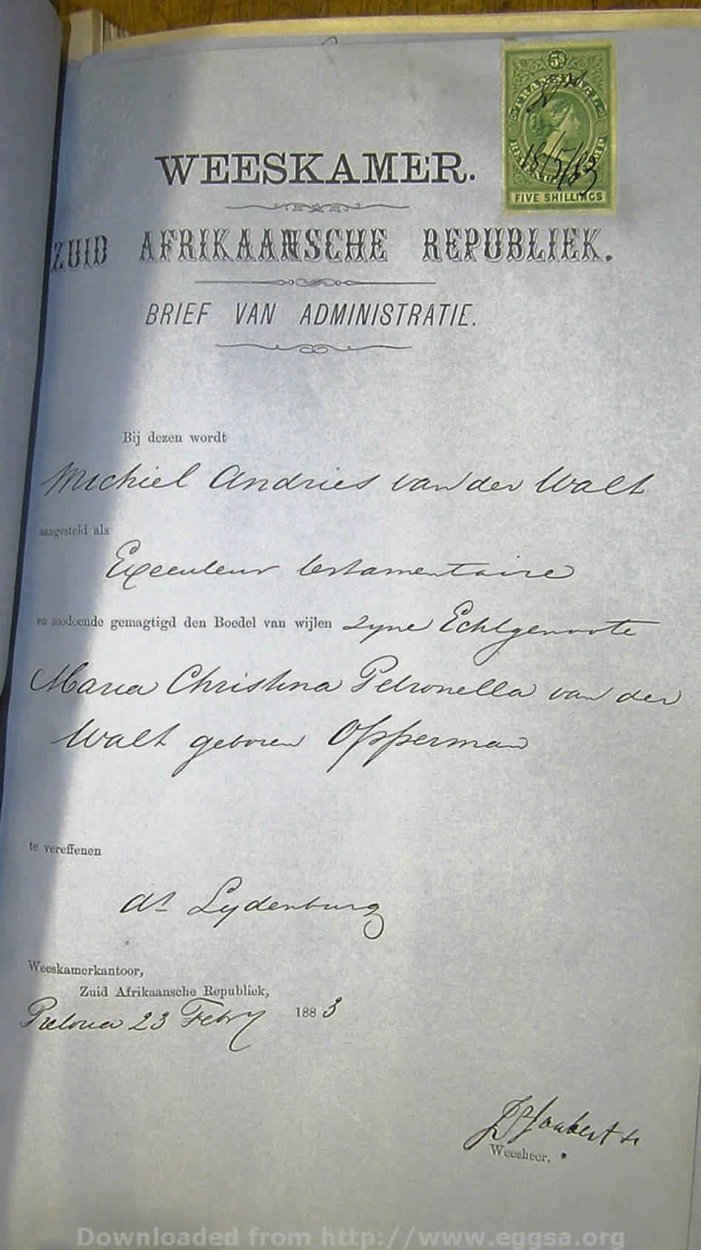 5s
TRANSVAAL
18/5/83
FIVE SHILLINGS
WEESKAMER.
ZUID AFRIKAANSCHE REPUBLIEK.
BRIEF VAN ADMINISTRATIE.
Bij dezen wordt
Michiel Andries van der Walt
aangesteld als
Executeur testamentaire
en zoodoende gemagtigd den Boedel van wijlen zyne Echtgenoote
Maria Christina Petronella van der
Walt geboren Opperman
te vereffenen
dt Lydenburg
Weeskamerkantoor,
Zuid Afrikaansche Republiek,
Pretoria 23 Febry 1883
Joubert
Weesheer.
Downloaded from http://www.eggsa.org